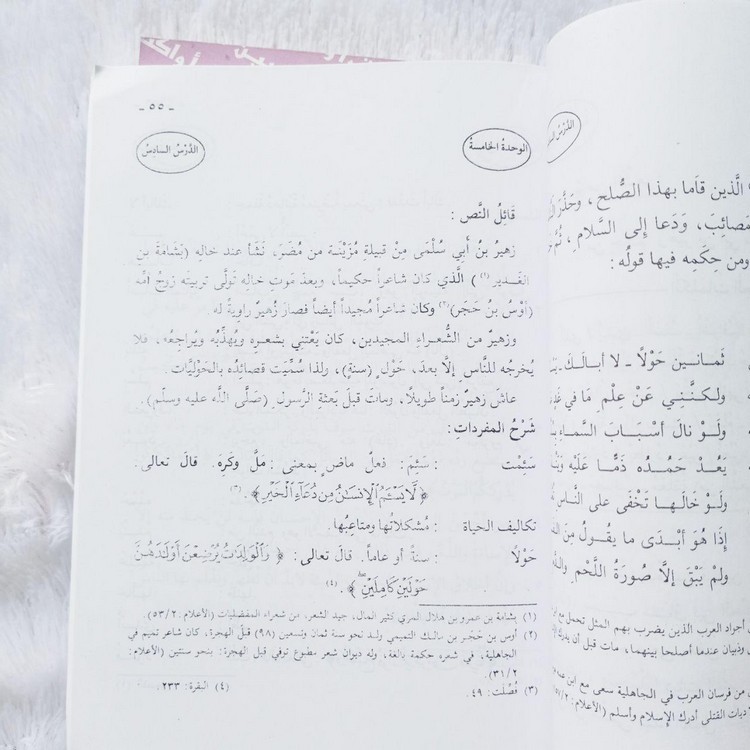 - ٥٥ -
الوحدة الخامسة
الدَّرْسُ السادسُ
قَائِلُ النَّص :
زهيرُ بنُ أبي سُلْمَى مِنْ قبيلةِ مُزَيْنَةَ من مُضَرَ، نَشَأ عند خالِهِ (بَشامَةَ بنِ
الغَدير (١)) الَّذي كان شاعراً حكيماً، وبعدَ مَوتِ خالِهِ تَولَّى تربيتَه زوجُ أمِّه
(أوْسُ بنُ حَجَر)(٢) وكان شاعراً مُجيداً أيضاً فصارَ زُهيرٌ راويةً له.
وزهيرٌ من الشُّعراءِ المجيدين، كان يَعْتَني بشعرِهِ ويُهَذِّبُه ويُراجِعُه، فلا
يُخرِجُه للنَّاسِ إلَّا بعدَ، حَوْلٍ (سنةٍ)، ولذا سُمِّيَت قصائدُه بالحَوْلِيَّات.
عاشَ زهيرٌ زمناً طويلاً، وماتَ قبلَ بَعثةِ الرَّسولِ (صَلَّى اللَّه عليه وسلَّم).
شَرْحُ المفرداتِ:
سَئِمْت : سَئِمَ: فعلٌ ماضٍ بمعنى: ملَّ وكرِهَ. قالَ تعالى.
﴿لَّا يَسْـَٔمُ ٱلْإِنسَٰنُ مِن دُعَآءِ ٱلْخَيْرِ﴾. (٣)
تكاليف الحياة : مُشكلاتُها ومتاعِبُها.
حَوْلًا : سنةً أو عاماً. قالَ تعالى: ﴿ وَٱلْوَٰلِدَٰتُ يُرْضِعْنَ أَوْلَٰدَهُنَّ
حَوْلَيْنِ كَامِلَيْنِ ﴾. (٤)
(١) بشامة بن عمرو بن هلال المري كثير المال، جيد الشعر، من شعراء المفضليات (الأعلام. ٥٣/٢).
(٢) أوس بن حَجَر بن مالك التميمي ولد نحو سنة ثمان وتسعين (٩٨) قبل الهجرة، كان شاعر تميم في
الجاهلية، في شعره حكمة بالغة، وله ديوان شعر مطبوع توفي قبل الهجرة: بنحو سنتين (الأعلام:
٣١/٢).
(٣) فُصِّلت: ٤٩.
(٤) البقرة: ٢٣٣.
الَّذين قَاما بهذا الصُّلح ، وحَذَّرَ
مصائبَ، وَدَعا إلى السَّلامِ، ثُمَّ
ومن حِكَمِه فيها قولُه :
ثَمانين حَوْلًا - لا أبالَكَ -
ولكنَّني عَنْ عِلْمِ مَا في
ولَوْ نالَ أسْبَابَ السَّماءِ
يَعُدْ حَمْدُه ذَمًّا عَلَيْه
ولَوْ خَالَها تَخْفَى على النَّاسِ
إذا هُوَ أبْدَى ما يقُولُ مِنَ
ولمْ يَبْقَ إلَّا صُورَةُ اللَّحْمِ
أجواد العرب الذين يضرب بهم المثل
وذبيان عندما أصلحا بينهما، مات قبل أن
من فرسان العرب في الجاهلية سعى مع ابن
ديات القتلى أدرك الإسلام وأسلم (الأعلام: